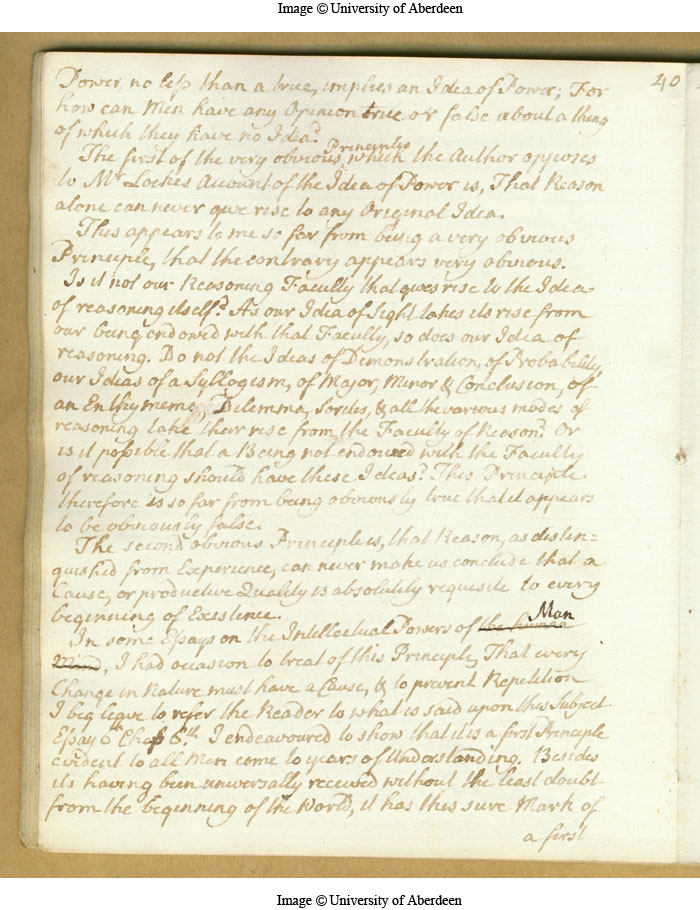 Image © University of Aberdeen
40
Power, no less than a true, implies an Idea of Power; For
how can Men have any Opinion true or false about a thing
of which they have no Idea?
The first of the very obvious Principles, which the Author opposes
to Mr Lockes Account of the Idea of Power is, That Reason
alone can never give rise to any Original Idea.
This appears to me so far from being a very obvious
Principle, that the contrary appears very obvious.
Is it not our Reasoning Faculty that gives rise to the Idea
of reasoning itself? As our Idea of Sight takes its rise from
our being endowed with that Faculty, so does our Idea of
reasoning. Do not the Ideas of Demonstration, of Probability,
our Ideas of a Syllogism, of Major, Minor & Conclusion, of
an Enthymeme, Dilemma, Sorites, & all the various modes of
reasoning take their rise from the Faculty of Reason? Or
is it possible that a Being not endowed with the Faculty
of reasoning should have these Ideas? This Principle
therefore is so far from being obviously true that it appears
to be obviously false.
The second obvious Principle is, that Reason, as distin=
quished from Experience, can never make us conclude that a
Cause, or productive Quality is absolutely requisite to every
beginning of Existence.
In some Essays on the Intellectual Powers of the human Man
Mind, I had occasion to treat of this Principle, That every
Change in Nature must have a Cause, & to prevent Repetition
I beg leave to refer the Reader to what is said upon this Subject
Essay 6th Chap 6th. I endeavoured to show that it is a first Principle
evident to all Men come to years of Understanding. Besides
its having been universally received without the least doubt
from the beginning of the World, it has this sure Mark of
a first
Image © University of Aberdeen